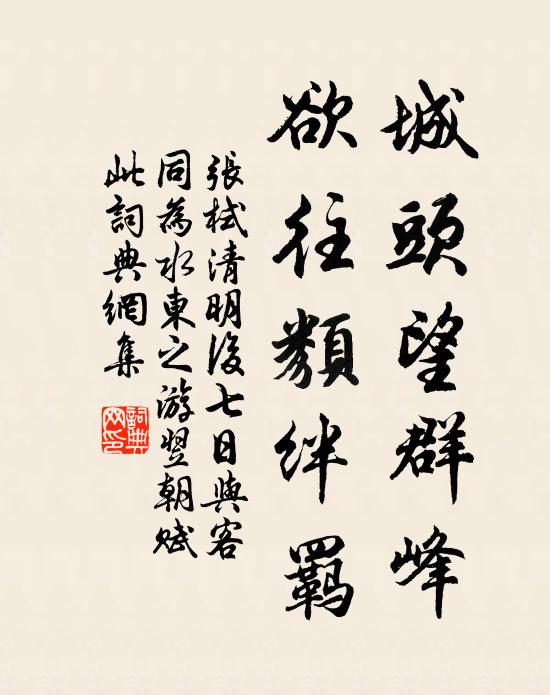 城頭望群峰
欲往類絆羈
張栻清明後七日與客
同為水東之游翌朝賦
此詞典網集
詞典
网印